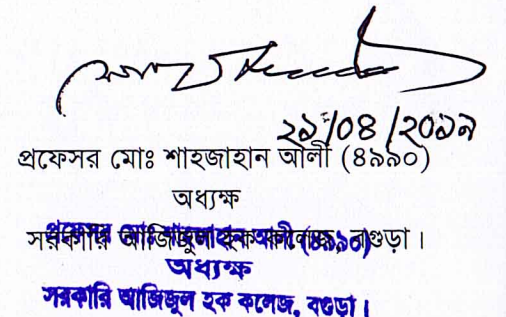 ২১/০৪/২০১৯
প্রফেসর মোঃ শাহজাহান আলী (৪৯৯০)
অধ্যক্ষ
সরকারি আজিজুল হক কলেজ, বগুড়া।
প্রফেসর মোঃ শাহজাহান আলী (৪৯৯০)
অধ্যক্ষ
সরকারি আজিজুল হক কলেজ, বগুড়া।